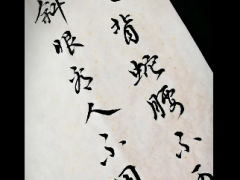 背蛇腰不
斜眼看人不